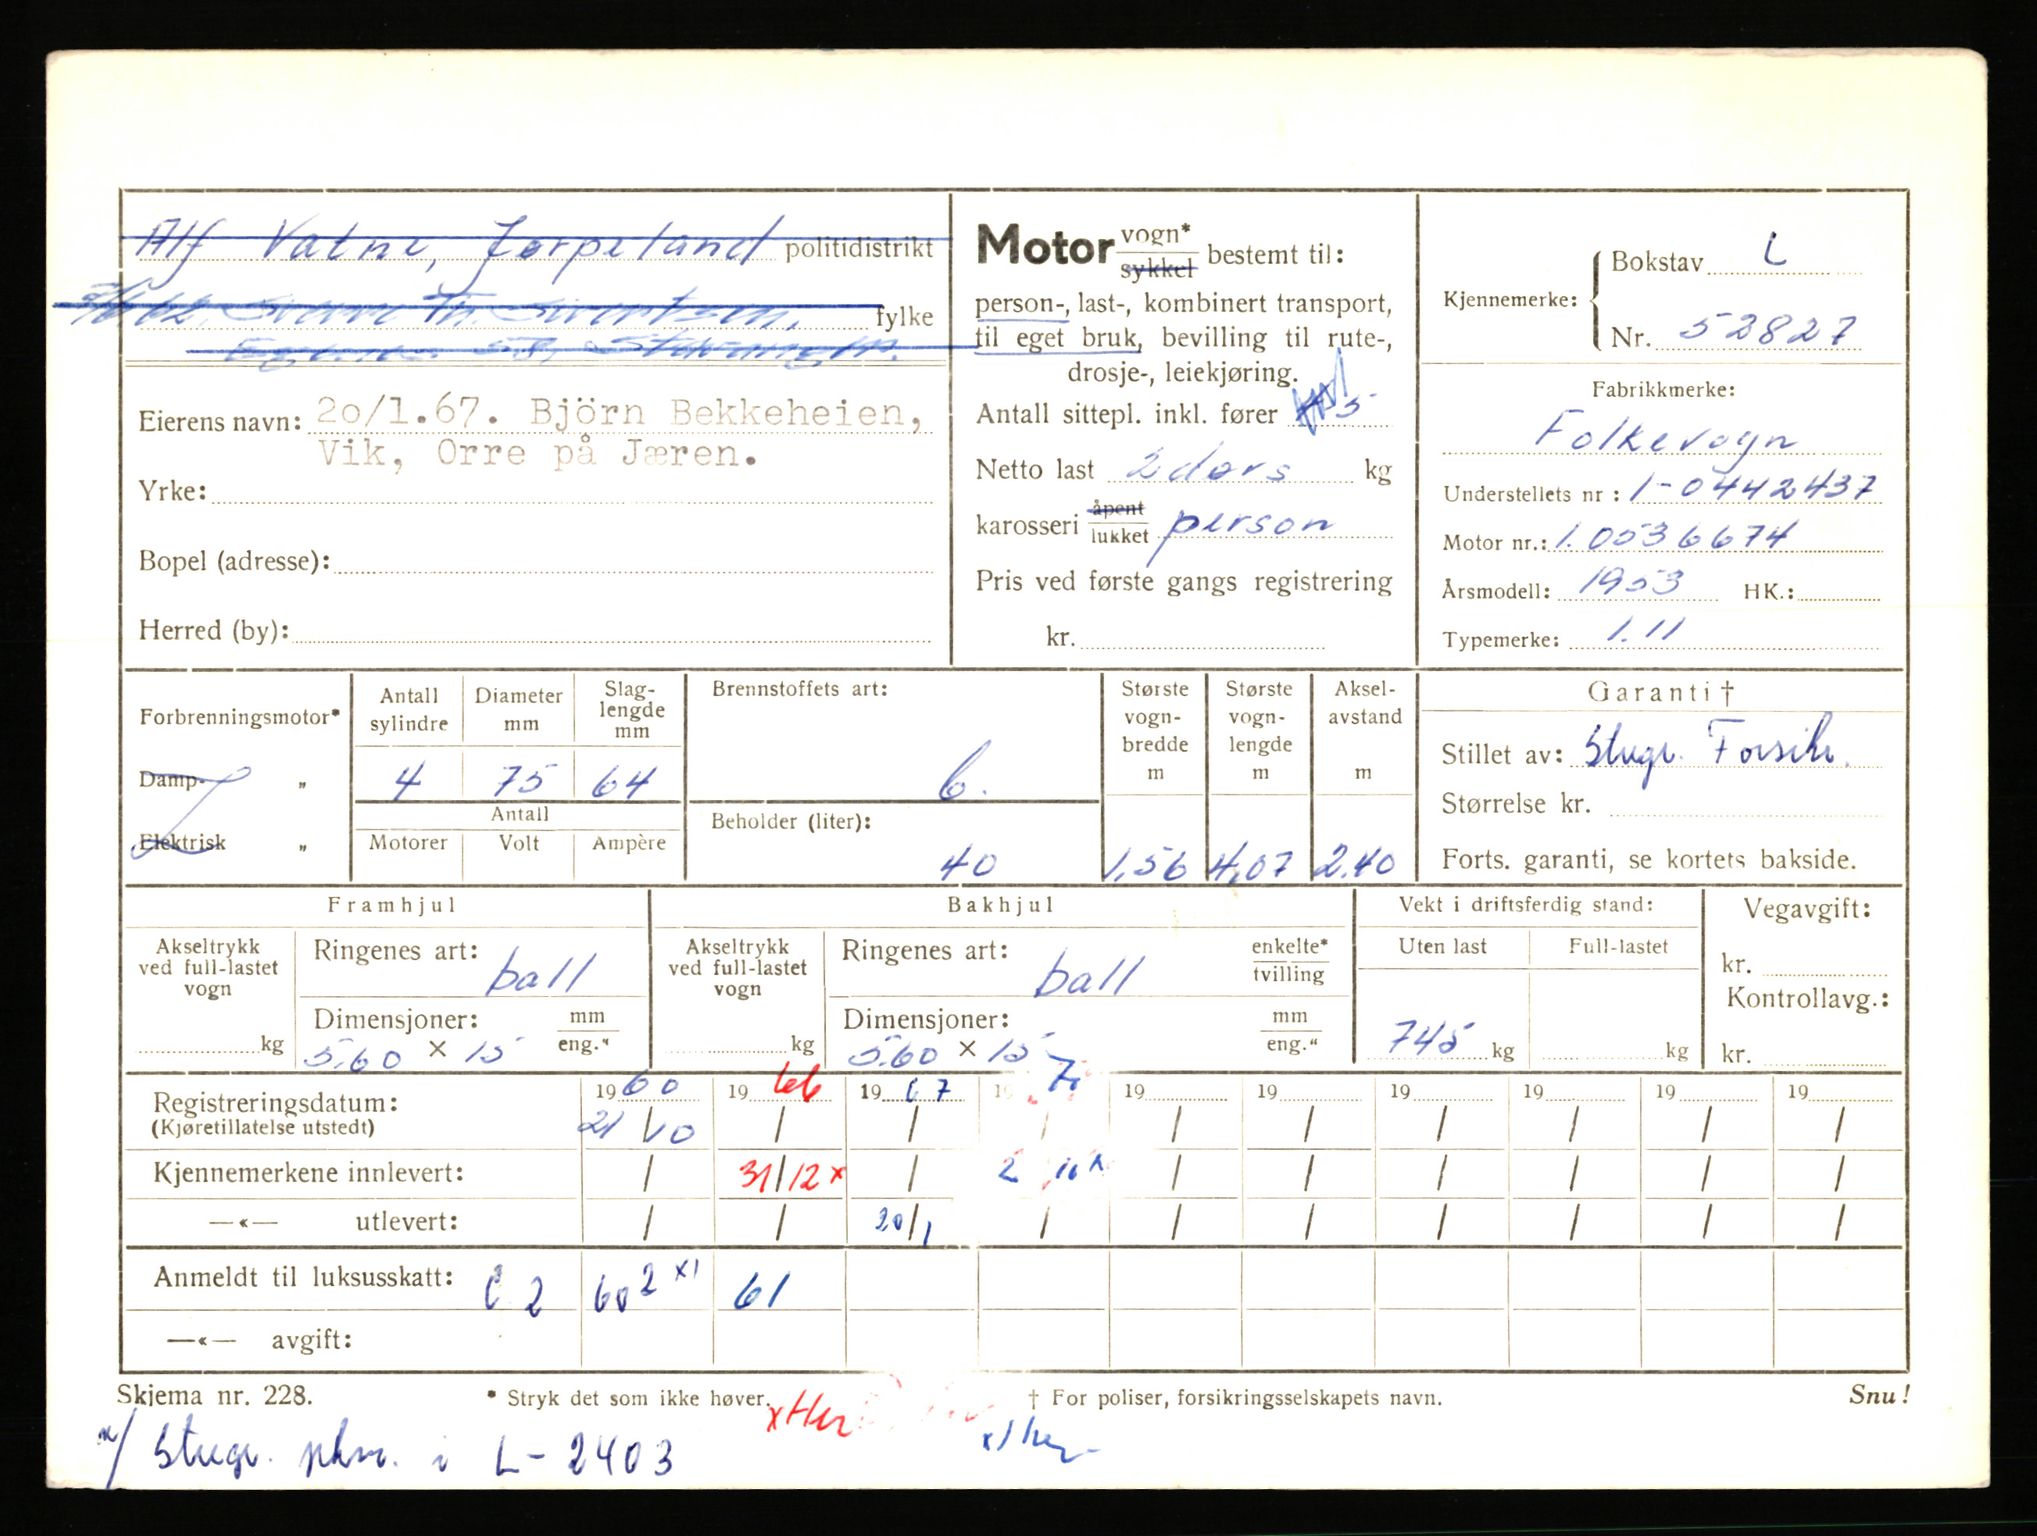 Alf Vatne, Jørpeland politidistrikt
Sverre Th. Sivertsen, fylke
Eierens navn: 2o/1.67. Björn Bekkeheien,
Vik, Orre på Jæren.
Yrke:
Bopel (adresse):
Herred (by):
Motor vogn* sykkel bestemt til:
person-, last-, kombinert transport,
til eget bruk, bevilling til rute-,
drosje-, leiekjøring.
Antall sittepl. inkl. fører 5
Netto last 2 dørs kg
karosseri åpent lukket person
Pris ved første gangs registrering
kr.
Kjennemerke: Bokstav L
Nr. 52827
Fabrikkmerke:
Folkevogn
Understellets nr : 1-0442437
Motor nr.: 1.0536674
Årsmodell: 1953 HK.:
Typemerke: 1.11
Forbrenningsmotor*
Damp- „
Elektrisk „
Antall sylindre Diameter mm Slag-lengde mm
4 75 64
Antall
Motorer Volt Ampère
Brennstoffets art:
b.
Beholder (liter):
40
Største vogn-bredde m 1,56
Største vogn-lengde m 4,07
Aksel-avstand m 2.40
Garanti †
Stillet av: Stvgr. Forsik.
Størrelse kr.
Forts. garanti, se kortets bakside.
Framhjul
Akseltrykk ved full-lastet vogn kg
Ringenes art: ball
Dimensjoner: mm eng."
5.60 × 15
Bakhjul
Akseltrykk ved full-lastet vogn kg
Ringenes art: ball enkelte* tvilling
Dimensjoner: mm eng."
5.60 × 15
Vekt i driftsferdig stand:
Uten last Full-lastet
745 kg kg
Vegavgift:
kr.
Kontrollavg.:
kr.
1960 1966 1967 19 19 19 19 19 19 19
Registreringsdatum: 21/10 / / / / / / / / /
(Kjøretillatelse utstedt)
Kjennemerkene innlevert: / 31/12 x / / / / / / /
—«— utlevert: / / 20/1 / / / / / / /
Anmeldt til luksusskatt: C 2 60 2 x1 61
—«— avgift:
Skjema nr. 228. * Stryk det som ikke høver. † For poliser, forsikringsselskapets navn. Snu!
x Her
x Her
x/ Stvgr. pkm. i L-2403